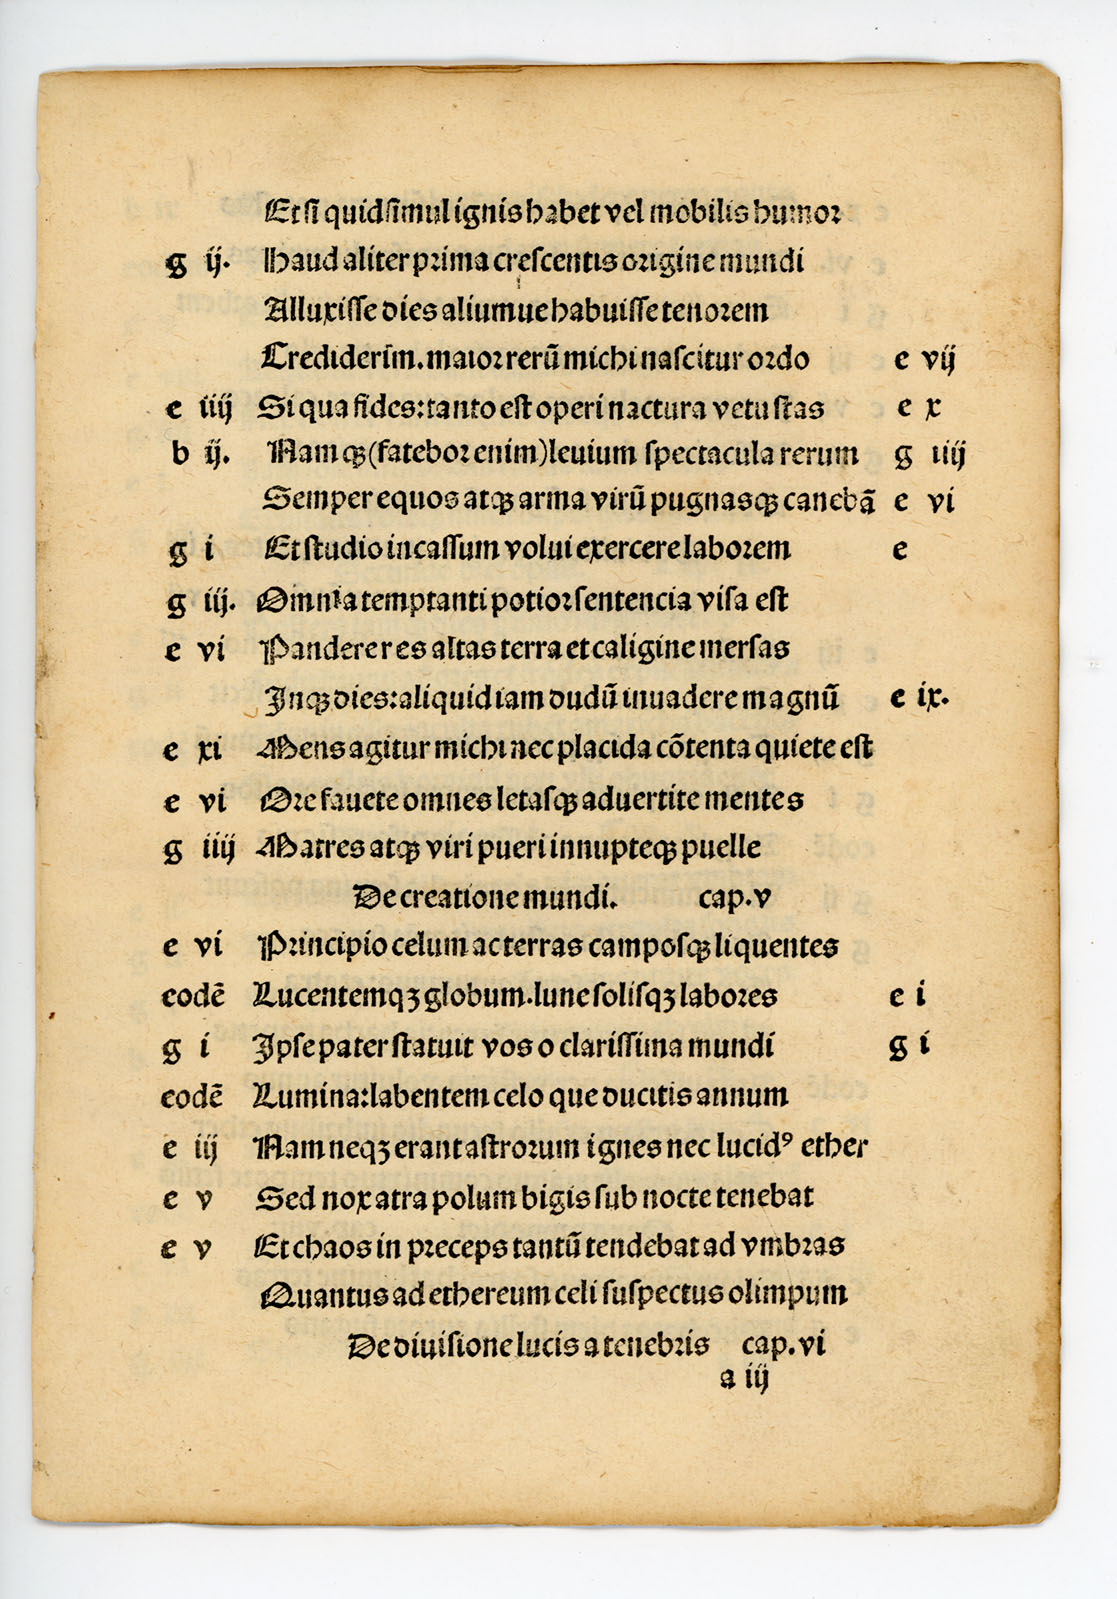 Et si quid simul ignis habet vel mobilis humor
g ij. Haud aliter prima crescentis origine mundi
Alluxisse dies aliumue habuisse tenorem
Crediderim. maior rerū michi nascitur ordo e vij
e iiij Si qua fides: tanto est operi nactura vetustas e x
b ij. Namqꝫ (fatebor enim) leuium spectacula rerum g iiij
Semper equos atqꝫ arma virū pugnasqꝫ canebā e vi
g i Et studio incassum volui exercere laborem e
g iij. Omnia temptanti potior sentencia visa est
e vi Pandere res altas terra et caligine mersas
Inqꝫ dies: aliquid iam dudū inuadere magnū e ix.
e xi Mens agitur michi nec placida cōtenta quiete est
e vi Ore fauete omnes letasqꝫ aduertite mentes
g iiij Matres atqꝫ viri pueri innupteqꝫ puelle
De creatione mundi. cap. v
e vi Principio celum ac terras camposqꝫ liquentes
eodē Lucentemqꝫ globum. lune solisqꝫ labores e i
g i Ipse pater statuit vos o clarissima mundi g i
eodē Lumina: labentem celo que ducitis annum
e iij Nam neqꝫ erant astrorum ignes nec lucidꝰ ether
e v Sed nox atra polum bigis sub nocte tenebat
e v Et chaos in preceps tantū tendebat ad vmbras
Quantus ad ethereum celi suspectus olimpum
De diuisione lucis a tenebris cap. vi
a iij